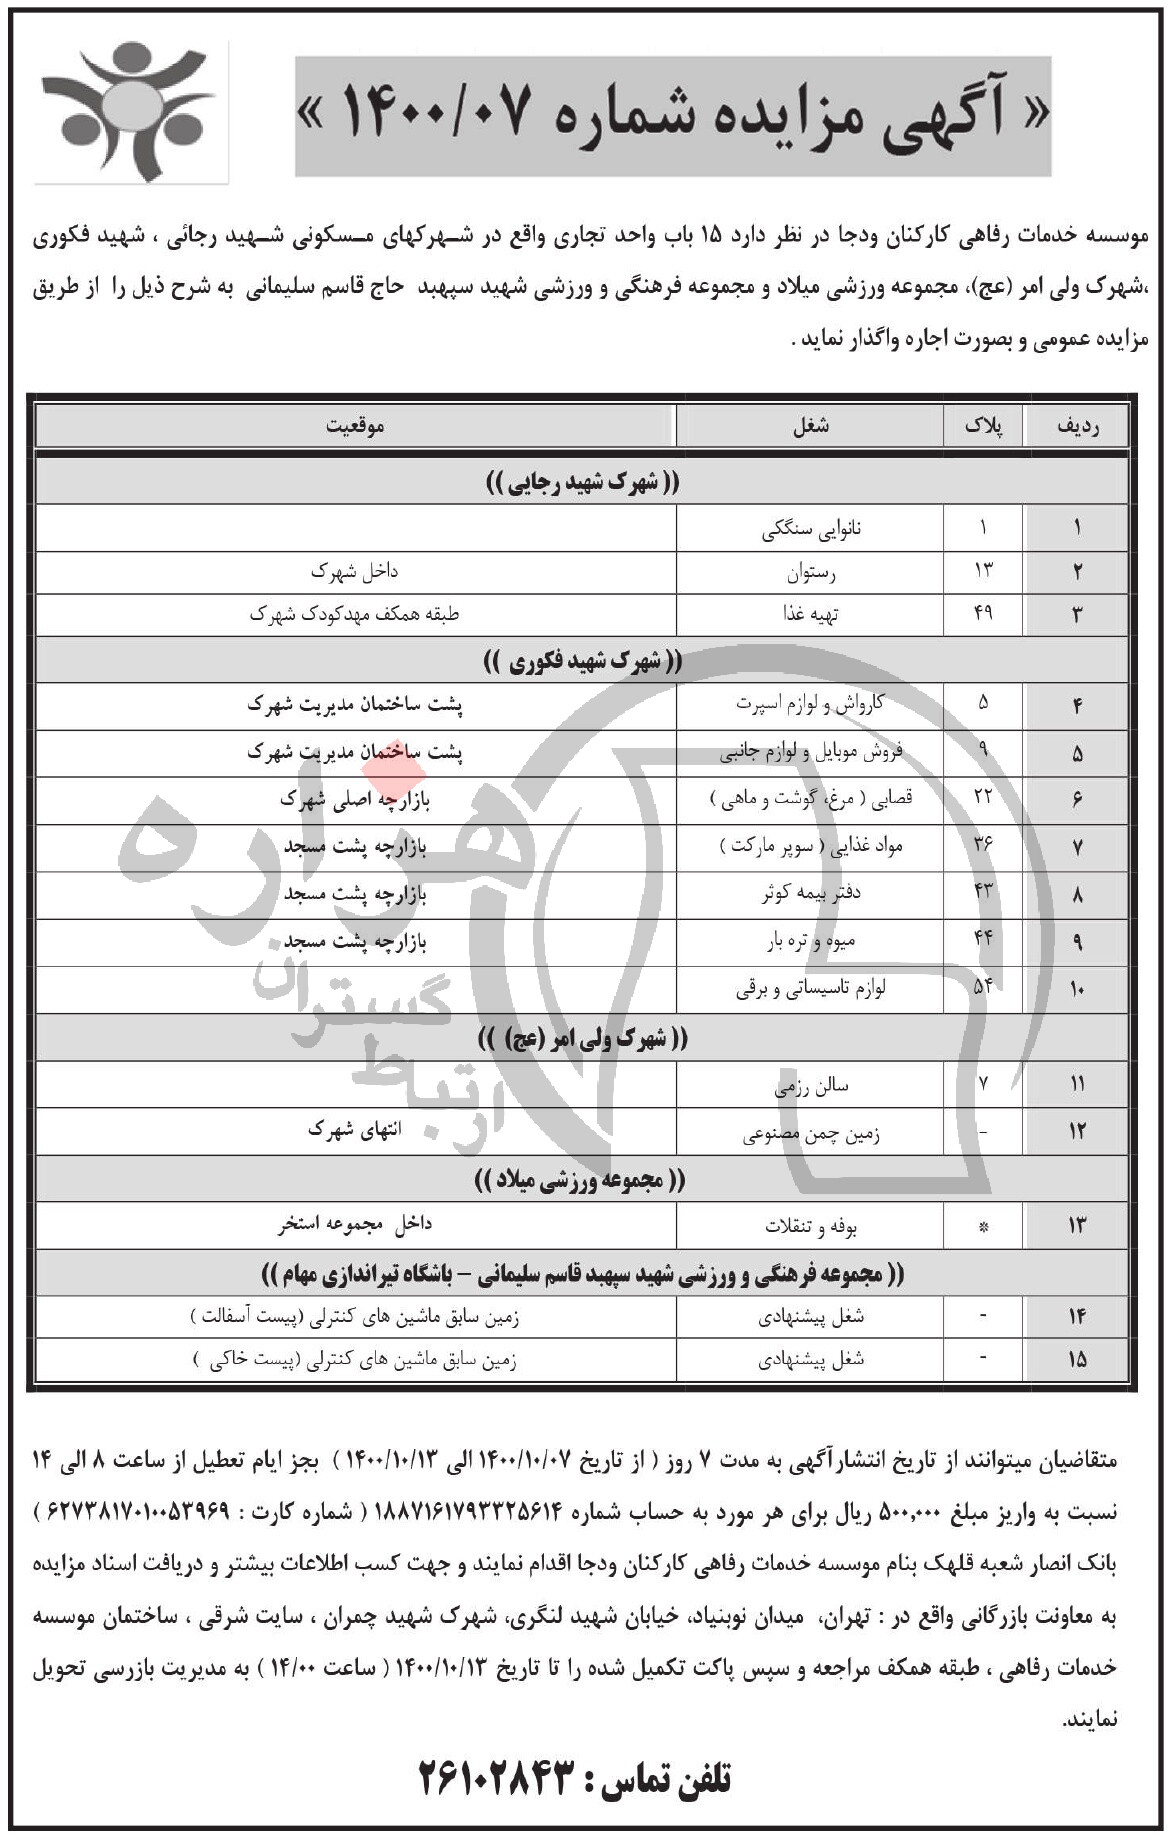 « آگهی مزایده شماره ۱۴۰۰/۰۷ »
موسسه خدمات رفاهی کارکنان ودجا در نظر دارد ۱۵ باب واحد تجاری واقع در شـهرکهای مـسکونی شـهید رجائی ، شهید فکوری
،شهرک ولی امر (عج)، مجموعه ورزشی میلاد و مجموعه فرهنگی و ورزشی شهید سپهبد حاج قاسم سلیمانی به شرح ذیل را از طریق
مزایده عمومی و بصورت اجاره واگذار نماید .
ردیف پلاک شغل موقعیت
(( شهرک شهید رجایی ))
۱ ۱ نانوایی سنگکی
۲ ۱۳ رستوان داخل شهرک
۳ ۴۹ تهیه غذا طبقه همکف مهدکودک شهرک
(( شهرک شهید فکوری ))
۴ ۵ کارواش و لوازم اسپرت پشت ساختمان مدیریت شهرک
۵ ۹ فروش موبایل و لوازم جانبی پشت ساختمان مدیریت شهرک
۶ ۲۲ قصابی ( مرغ، گوشت و ماهی ) بازارچه اصلی شهرک
۷ ۳۶ مواد غذایی ( سوپر مارکت ) بازارچه پشت مسجد
۸ ۴۳ دفتر بیمه کوثر بازارچه پشت مسجد
۹ ۴۴ میوه و تره بار بازارچه پشت مسجد
۱۰ ۵۴ لوازم تاسیساتی و برقی
(( شهرک ولی امر (عج) ))
۱۱ ۷ سالن رزمی
۱۲ - زمین چمن مصنوعی انتهای شهرک
(( مجموعه ورزشی میلاد ))
۱۳ * بوفه و تنقلات داخل مجموعه استخر
(( مجموعه فرهنگی و ورزشی شهید سپهبد قاسم سلیمانی – باشگاه تیراندازی مهام ))
۱۴ - شغل پیشنهادی زمین سابق ماشین های کنترلی (پیست آسفالت )
۱۵ - شغل پیشنهادی زمین سابق ماشین های کنترلی (پیست خاکی )
هزاره
گستران
ارتباط
متقاضیان میتوانند از تاریخ انتشارآگهی به مدت ۷ روز ( از تاریخ ۱۴۰۰/۱۰/۰۷ الی ۱۴۰۰/۱۰/۱۳ ) بجز ایام تعطیل از ساعت ۸ الی ۱۴
نسبت به واریز مبلغ ۵۰۰,۰۰۰ ریال برای هر مورد به حساب شماره ۱۸۸۷۱۶۱۷۹۳۳۲۵۶۱۴ ( شماره کارت : ۶۲۷۳۸۱۷۰۱۰۰۵۳۹۶۹ )
بانک انصار شعبه قلهک بنام موسسه خدمات رفاهی کارکنان ودجا اقدام نمایند و جهت کسب اطلاعات بیشتر و دریافت اسناد مزایده
به معاونت بازرگانی واقع در : تهران، میدان نوبنیاد، خیابان شهید لنگری، شهرک شهید چمران ، سایت شرقی ، ساختمان موسسه
خدمات رفاهی ، طبقه همکف مراجعه و سپس پاکت تکمیل شده را تا تاریخ ۱۴۰۰/۱۰/۱۳ ( ساعت ۱۴/۰۰ ) به مدیریت بازرسی تحویل
نمایند.
تلفن تماس : ۲۶۱۰۲۸۴۳